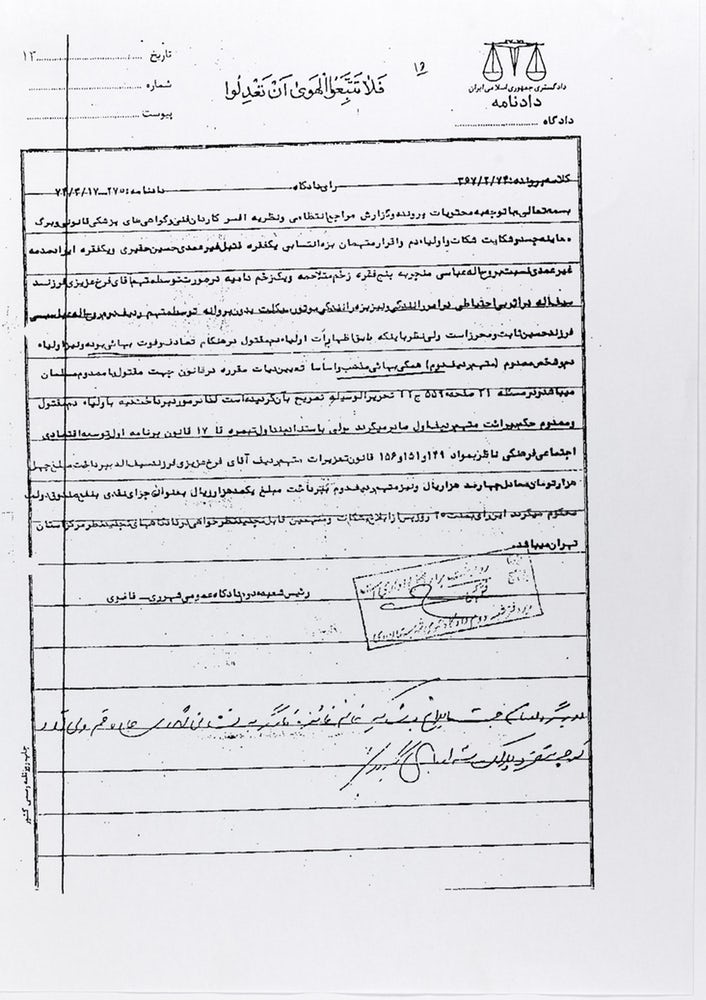 دادگستری جمهوری اسلامی ایران
دادنامه
دادگاه
فَلا تَتَّبِعُوا الْهَوىٰ اَنْ تَعْدِلُوا
تاریخ ۱۳
شماره
پیوست
کلاسه پرونده: ۳۵۷/۲/۷۴ رای دادگاه دادنامه: ۲۷۵-۷۴/۳/۱۷
بسمه تعالی با توجه به محتویات پرونده و گزارش مراجع انتظامی و نظریه افسر کاردان فنی و گواهی‌های پزشکی قانونی و برگ
معاینه جسد و شکایت شکات و اولیاء دم و اقرار متهمان بزه انتسابی یکفقره قتل غیر عمدی حسین حقیری و یکفقره ایراد صدمه
غیر عمدی نسبت بروح اله عباسی منجر به پنج فقره زخم متلاحمه و یک زخم دامیه در صورت توسط متهم آقای فرخ عزیزی فرزند
سیف اله در اثر بی احتیاطی در امر رانندگی و نیز بزه رانندگی موتور سکلت بدون پروانه توسط متهم ردیف دوم روح اله عباسی
فرزند حسین ثابت و محرز است ولی نظر باینکه طبق اظهارات اولیاء دم مقتول در هنگام تصادف و فوت بهائی بوده و نیز اولیاء
دم و شخص مصدوم (متهم ردیف دوم) همگی بهائی مذهب و اساسا تعیین دیات مقرره در قانون جهت مقتول یا مصدوم مسلمان
میباشد و در مسئله ۲۱ صفحه ۵۵۹ ج ۲ تحریر الوسیله تصریح بآن گردیده است لذا در مورد پرداخت دیه باولیاء دم مقتول
و مصدوم حکم برائت متهم ردیف اول صادر میگردد ولی باستناد بند اول تبصره ۱۷ قانون برنامه اول توسعه اقتصادی
اجتماعی فرهنگی ناظر بمواد ۱۴۹ و ۱۵۱ و ۱۵۶ قانون تعزیرات متهم ردیف آقای فرخ عزیزی فرزند سیف اله بپرداخت مبلغ چهل
هزار تومان معادل چهارصد هزار ریال و نیز متهم ردیف دوم بپرداخت مبلغ یکصد هزار ریال بعنوان جزای نقدی بنفع صندوق دولت
محکوم میگردند این رای بمدت ۲۰ روز پس از ابلاغ بشکات و متهمین قابل تجدید نظر خواهی در دادگاههای تجدید نظر مرکز استان
تهران میباشد.
رئیس شعبه دوم دادگاه عمومی شهرری - قانوی
چاپ روزنامه رسمی کشور